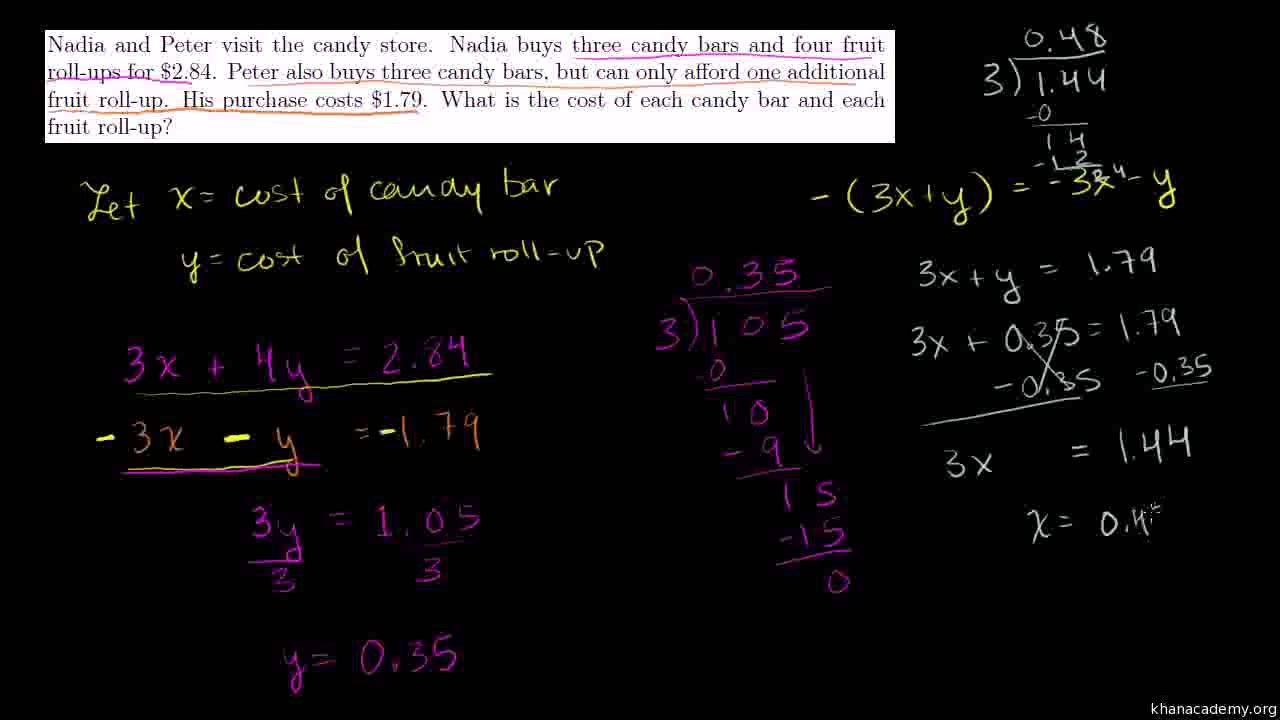 Nadia and Peter visit the candy store. Nadia buys three candy bars and four fruit
roll-ups for $2.84. Peter also buys three candy bars, but can only afford one additional
fruit roll-up. His purchase costs $1.79. What is the cost of each candy bar and each
fruit roll-up?
Let x = cost of candy bar
y = cost of fruit roll-up
3x + 4y = 2.84
-3x - y = -1.79
3y = 1.05
3 3
y = 0.35
0.35
3)105
-0
10
-9
15
-15
0
0.48
3)1.44
-0
14
-12
24
-(3x+y) = -3x - y
3x + y = 1.79
3x + 0.35 = 1.79
-0.35 -0.35
3x = 1.44
x = 0.4
khanacademy.org